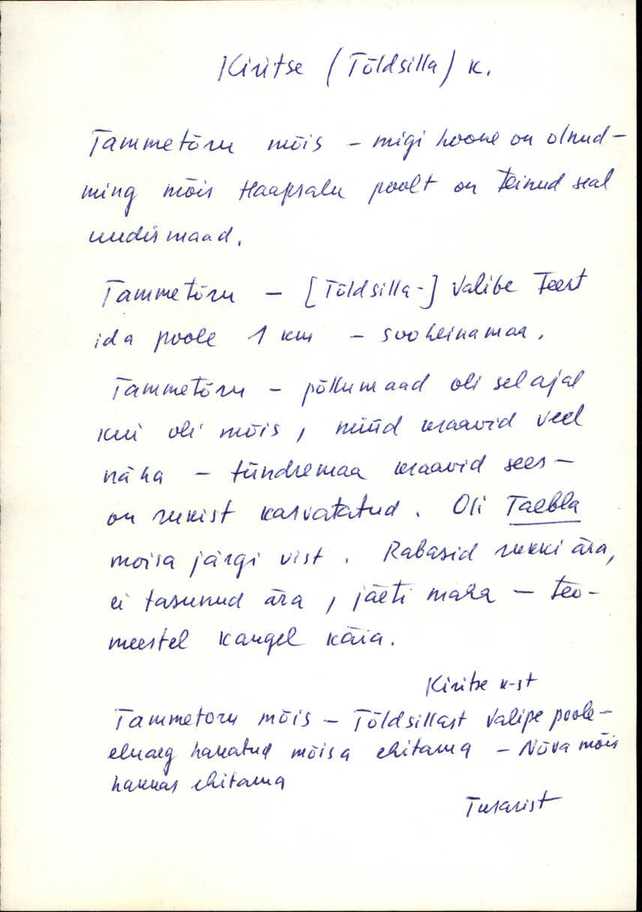 Kiritse (Tõldsilla) k.
Tammetõru mõis – migi hoone on olnud –
ming mõis Haapsalu poolt on teinud seal
uudismaad.
Tammetõru – [Tõldsilla-] Valipe teest
ida poole 1 km – sooheinamaa.
Tammetõru – põllumaad oli sel ajal
kui oli mõis, nüüd kraavid veel
näha – tündremaa kraavid sees –
on rukist kasvatatud. Oli Taebla
moisa järgi vist. Rabasid rukki ära,
ei tasunud ära, jäeti maha – teo-
meestel kaugel käia.
Kiritse k-st
Tammetoru mõis – Tõldsillast Valipe poole –
eluaeg hakatud mõisa ehitama – Nõva mõis
hakkas ehitama